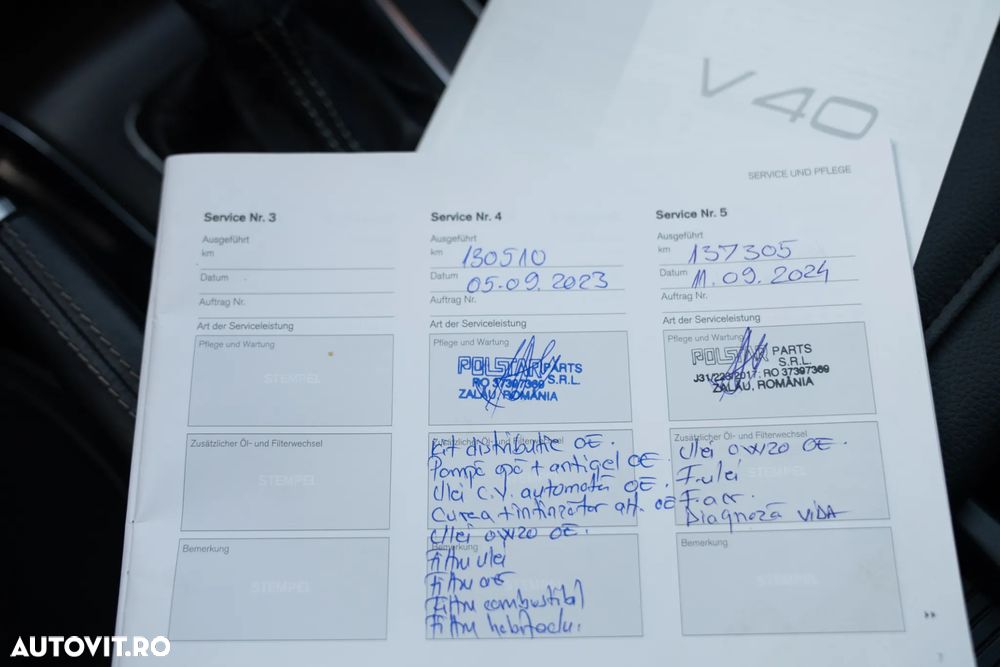 V40
SERVICE UND PFLEGE
Service Nr. 3
Ausgeführt
km
Datum
Auftrag Nr.
Art der Serviceleistung
Pflege und Wartung
STEMPEL
Zusätzlicher Öl- und Filterwechsel
STEMPEL
Bemerkung
STEMPEL
Service Nr. 4
Ausgeführt
km 130510
Datum 05.09.2023
Auftrag Nr.
Art der Serviceleistung
Pflege und Wartung
POLSTAR PARTS
S.R.L.
RO 37397369
ZALĂU, ROMÂNIA
Zusätzlicher Öl- und Filterwechsel
Kit distributie OE.
Pompă apă + antigel OE.
Ulei C.V. automată OE.
Curea + intinzător alt. OE
Ulei 0W20 OE.
Bemerkung
Filtru ulei
Filtru
Filtru combustibil
Filtru habitaclu.
STEMPEL
Service Nr. 5
Ausgeführt
km 137305
Datum 11.09.2024
Auftrag Nr.
Art der Serviceleistung
Pflege und Wartung
POLSTAR PARTS
S.R.L.
RO 37397369
ZALĂU, ROMÂNIA
Zusätzlicher Öl- und Filterwechsel
Ulei 0W20 OE.
F. ulei
F. aer.
Diagnoză VIDA
STEMPEL
Bemerkung
STEMPEL
7
AUTOVIT.RO